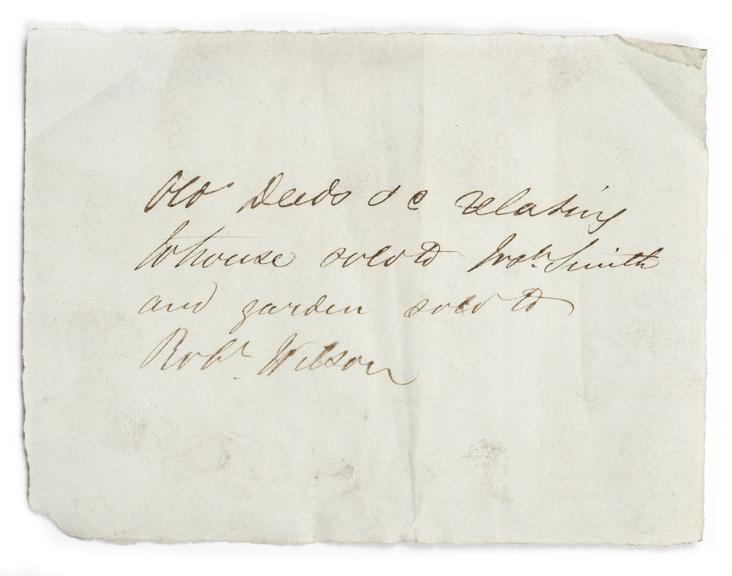 Old Deeds &c relating
to house sold to Jnoh. Smith
and garden sold to
Robt. Wilson